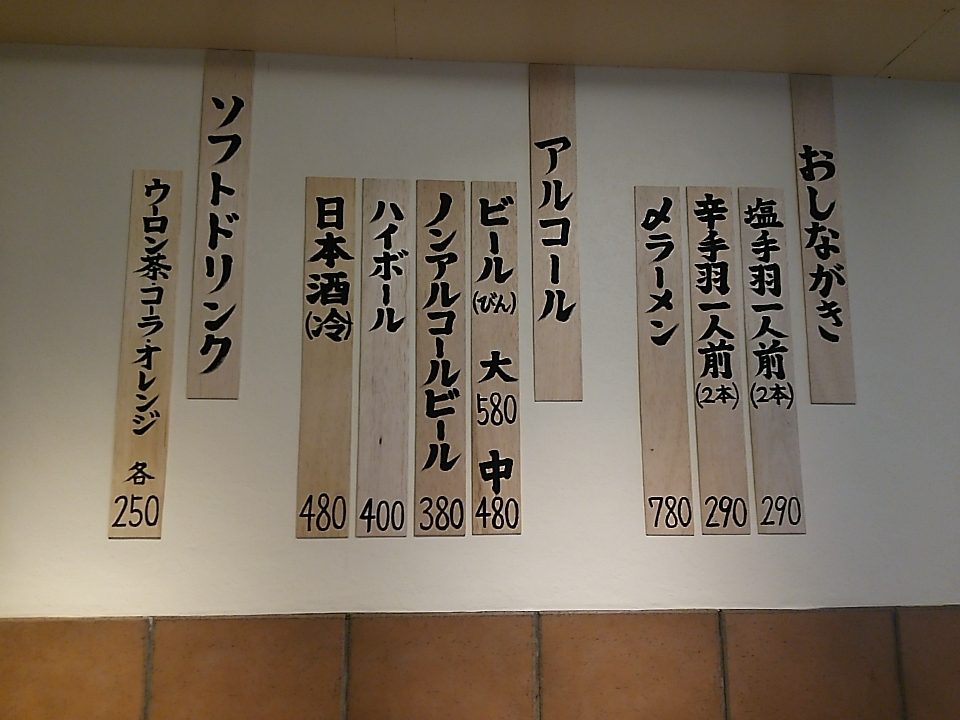 おしながき
塩手羽一人前(2本) 290
辛手羽一人前(2本) 290
〆ラーメン 780
アルコール
ビール(びん) 大 580 中 480
ノンアルコールビール 380
ハイボール 400
日本酒(冷) 480
ソフトドリンク
ウーロン茶・コーラ・オレンジ 各 250